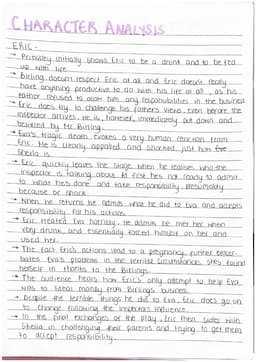 CHARACTER ANALYSIS
ERIC -
→ Priestley initially shows Eric to be a drunk and to be fed
up with life.
→ Birling doesn't respect Eric at all and Eric doesn't really
have anything productive to do with his life at all, as his
father refused to allow him any responsibilities in the business
→ Eric does try to challenge his father's views even before the
inspector arrives. He is, however, immediately put down and
belittled by Mr Birling.
→ Eva's tragic death evokes a very human reaction from
Eric. He is clearly appalled and shocked, just how
Sheila is.
→ Eric quickly leaves the stage when he realises who the
inspector is talking about. At first he's not ready to admit
to what he's done and take responsibility, presumably
because of shock.
→ When he returns he admits what he did to Eva and accepts
responsibility for his actions.
→ Eric treated Eva horribly. He admits he met her when
very drunk, and essentially forced himself on her and
used her.
→ The fact Eric's actions lead to a pregnancy, further exacer-
bates Eva's problems in the terrible circumstances she's found
herself in thanks to the Birlings.
→ The audience hears how Eric's only attempt to help Eva
was to steal money from Birling's business.
→ Despite the terrible things he did to Eva, Eric does go on
to change following the Inspector's influence.
→ In the final exchanges of the play, Eric then sides with
Sheila in challenging their parents and trying to get them
to accept responsibility.